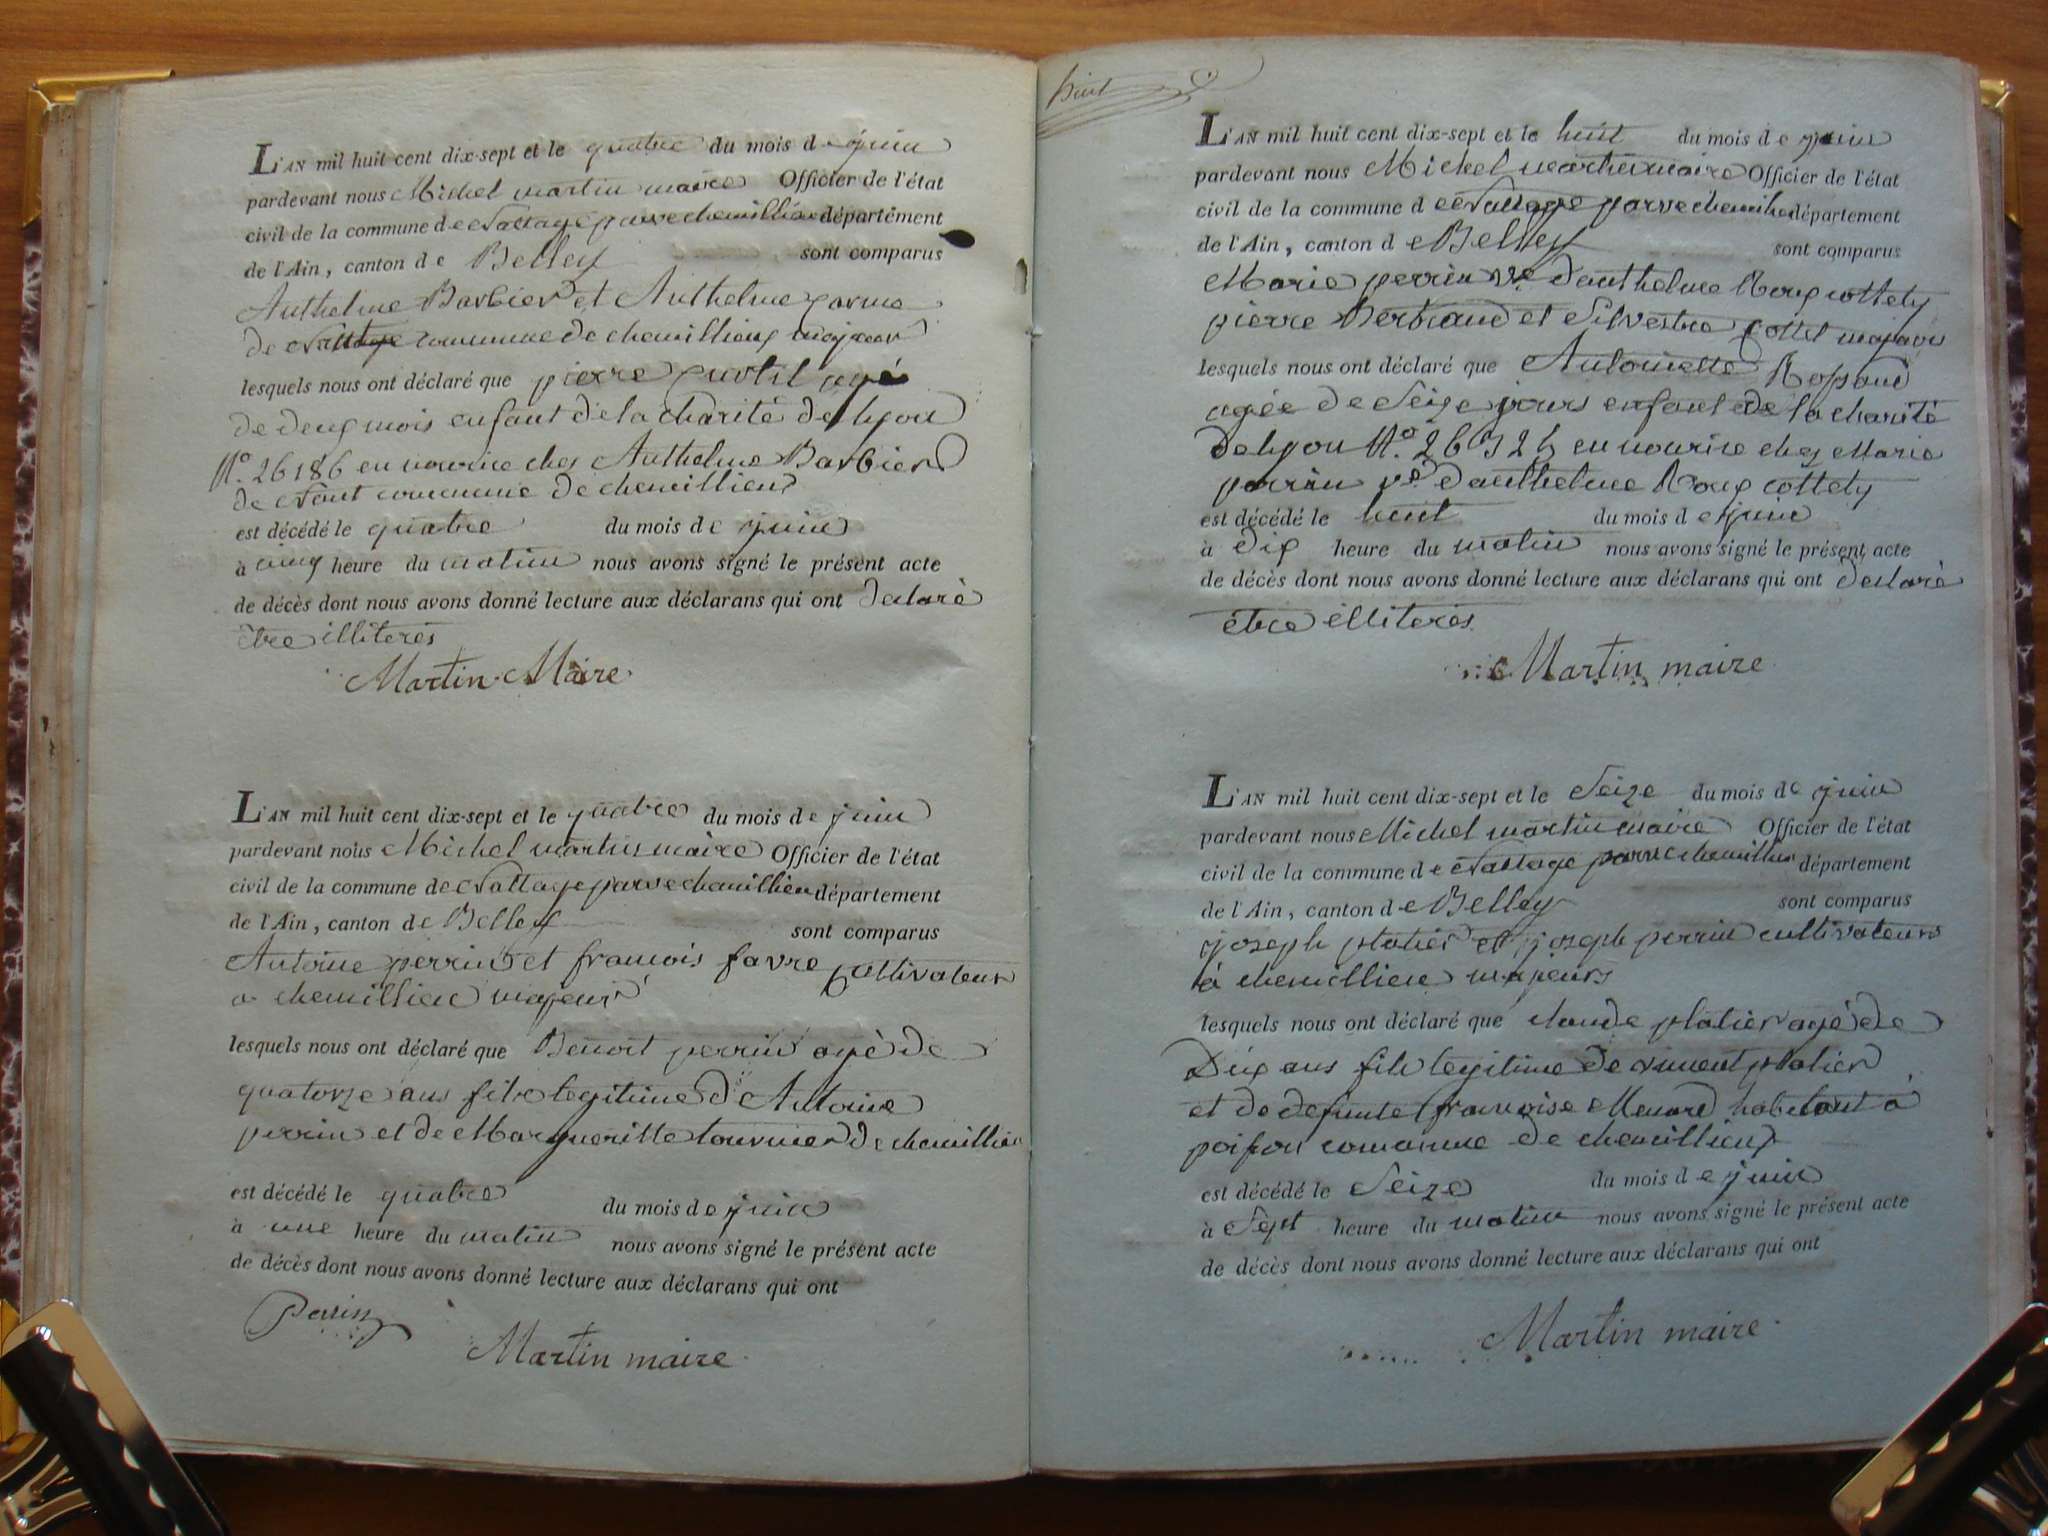 L'AN mil huit cent dix-sept et le quatre du mois de juin
pardevant nous Michel martin maire Officier de l'état
civil de la commune de Nattage parve chemillieu département
de l'Ain, canton de Belley sont comparus
Anthelme Barbier et Anthelme
de Nattage commune de chemillieux majeur
lesquels nous ont déclaré que pierre agé
de deux mois enfant de la charité de lyon
N.º 26186 en nourice chez Anthelme Barbier
de commune de chemillieux
est décédé le quatre du mois de juin
à cinq heure du matin nous avons signé le présent acte
de décès dont nous avons donné lecture aux déclarans qui ont declaré
être illiterés
Martin Maire
L'AN mil huit cent dix-sept et le quatre du mois de juin
pardevant nous Michel martin maire Officier de l'état
civil de la commune de Nattage parve chemillieu département
de l'Ain, canton de Belley sont comparus
Antoine perrin et francois favre cultivateur
a chemillieu majeur
lesquels nous ont déclaré que Benoit perrin agé de
quatorze ans fils legitime d'Antoine
perrin et de Margueritte tournier de chemillieu
est décédé le quatre du mois de juin
à une heure du matin nous avons signé le présent acte
de décès dont nous avons donné lecture aux déclarans qui ont
Perrin
Martin maire
huit
L'AN mil huit cent dix-sept et le huit du mois de juin
pardevant nous Michel martin maire Officier de l'état
civil de la commune de Nattage parve chemilieu département
de l'Ain, canton de Belley sont comparus
Marie perrin vve d'anthelme Roux cottety
pierre Bertrand et Silvestre Cottet majeurs
lesquels nous ont déclaré que Antoinette
agée de Seize jours enfant de la charité
de lyon N.º en nourice chez Marie
perrin vve d'anthelme Roux cottety
est décédé le huit du mois de juin
à dix heure du matin nous avons signé le présent acte
de décès dont nous avons donné lecture aux déclarans qui ont declaré
être illiterés
Martin maire
L'AN mil huit cent dix-sept et le Seize du mois de juin
pardevant nous Michel martin maire Officier de l'état
civil de la commune de Nattage parve chemillieu département
de l'Ain, canton de Belley sont comparus
joseph platier et joseph perrin cultivateurs
à chemillieu majeurs
lesquels nous ont déclaré que claude platier agé de
Dix ans fils legitime de vincent platier
et de defunte francoise Menard habitant à
poisson commune de chemillieux
est décédé le Seize du mois de juin
à Sept heure du matin nous avons signé le présent acte
de décès dont nous avons donné lecture aux déclarans qui ont
Martin maire